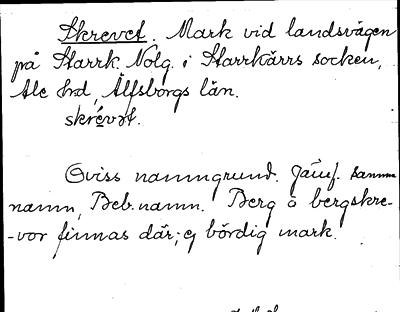 Skrevet. Mark vid landsvägen
på Starrk. Nolg. i Starrkärrs socken,
Ale hrd, Älfsborgs län.
skrévət.
Oviss namngrund. Jämf. samma
namn, Beb.namn. Berg o bergskre-
-vor finnas där; ej bördig mark.